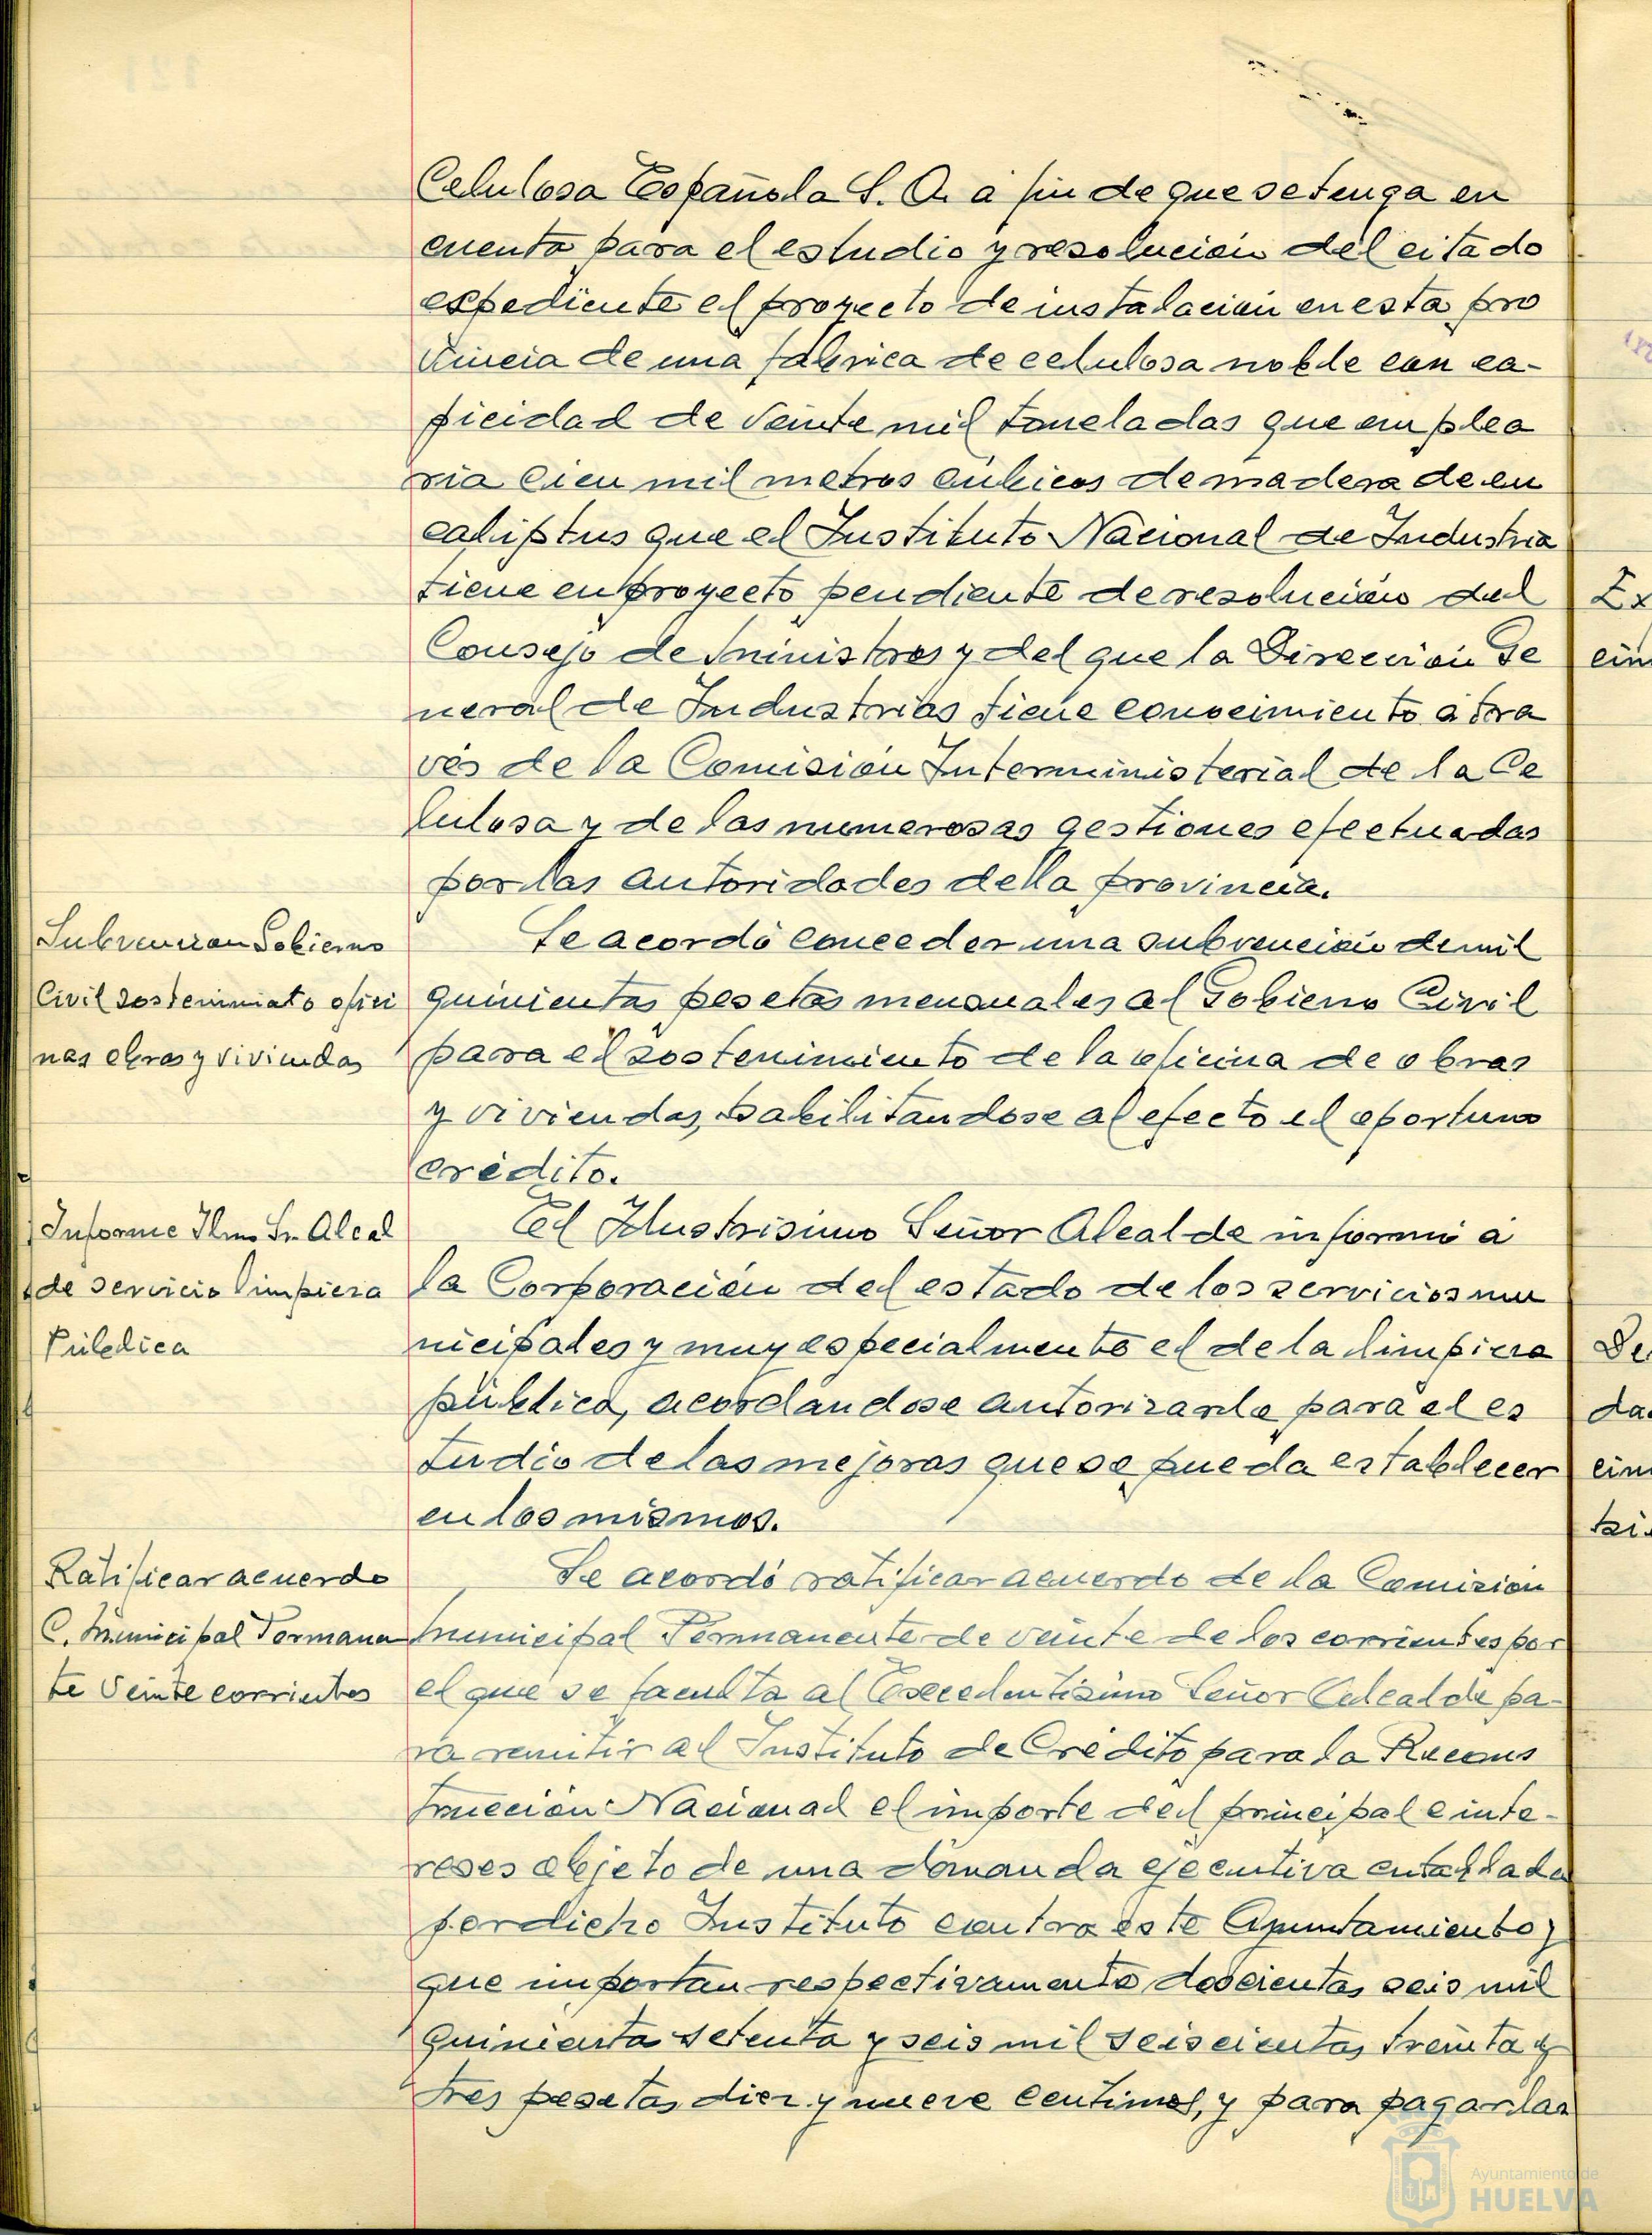 Celulosa Española S. A. a fin de que se tenga en
cuenta para el estudio y resolución del citado
expediente el proyecto de instalación en esta pro
vincia de una fábrica de celulosa noble con ca-
picidad de veinte mil toneladas que emplea
ria cien mil metros cúbicos de madera de eu
caliptus que el Instituto Nacional de Industria
tiene en proyecto pendiente de resolución del
Consejo de Ministros y del que la Dirección Ge
neral de Industrias tiene conocimiento a tra
vés de la Comisión Interministerial de la Ce
lulosa y de las numerosas gestiones efectuadas
por las autoridades de la provincia.
Subvencion Gobierno
Civil sostenimiato ofici
nas obras y viviendas
Se acordó conceder una subvención de mil
quinientas pesetas mensuales al Gobierno Civil
para el sostenimiento de la oficina de obras
y viviendas, habilitandose al efecto el oportuno
crédito.
Informe Ilmo Sr. Alcal
de servicio limpieza
Pública
El Ilustrisimo Señor Alcalde informó a
la Corporación del estado de los servicios mu
nicipales y muy especialmente el de la limpieza
pública, acordandose autorizarle para el es
tudio de las mejoras que se pueda establecer
en los mismos.
Ratificar acuerdo
C. Municipal Permanen
te veinte corrientes
Se acordó ratificar acuerdo de la Comision
Municipal Permanente de veinte de los corrientes por
el que se faculta al Excecelentisimo Señor Alcalde pa-
ra remitir al Instituto de Crédito para la Recons
trucción Nacional el importe del principal e inte-
reses objeto de una demanda ejecutiva entablada
por dicho Instituto contra este Ayuntamiento y
que importan respectivamente doscientas seis mil
quinienta setenta y seis mil seiscientas treinta y
tres pesetas diez y nueve centimos, y para pagarlas
Ex
cin
De
da
cim
tri
Ayuntamiento de
HUELVA